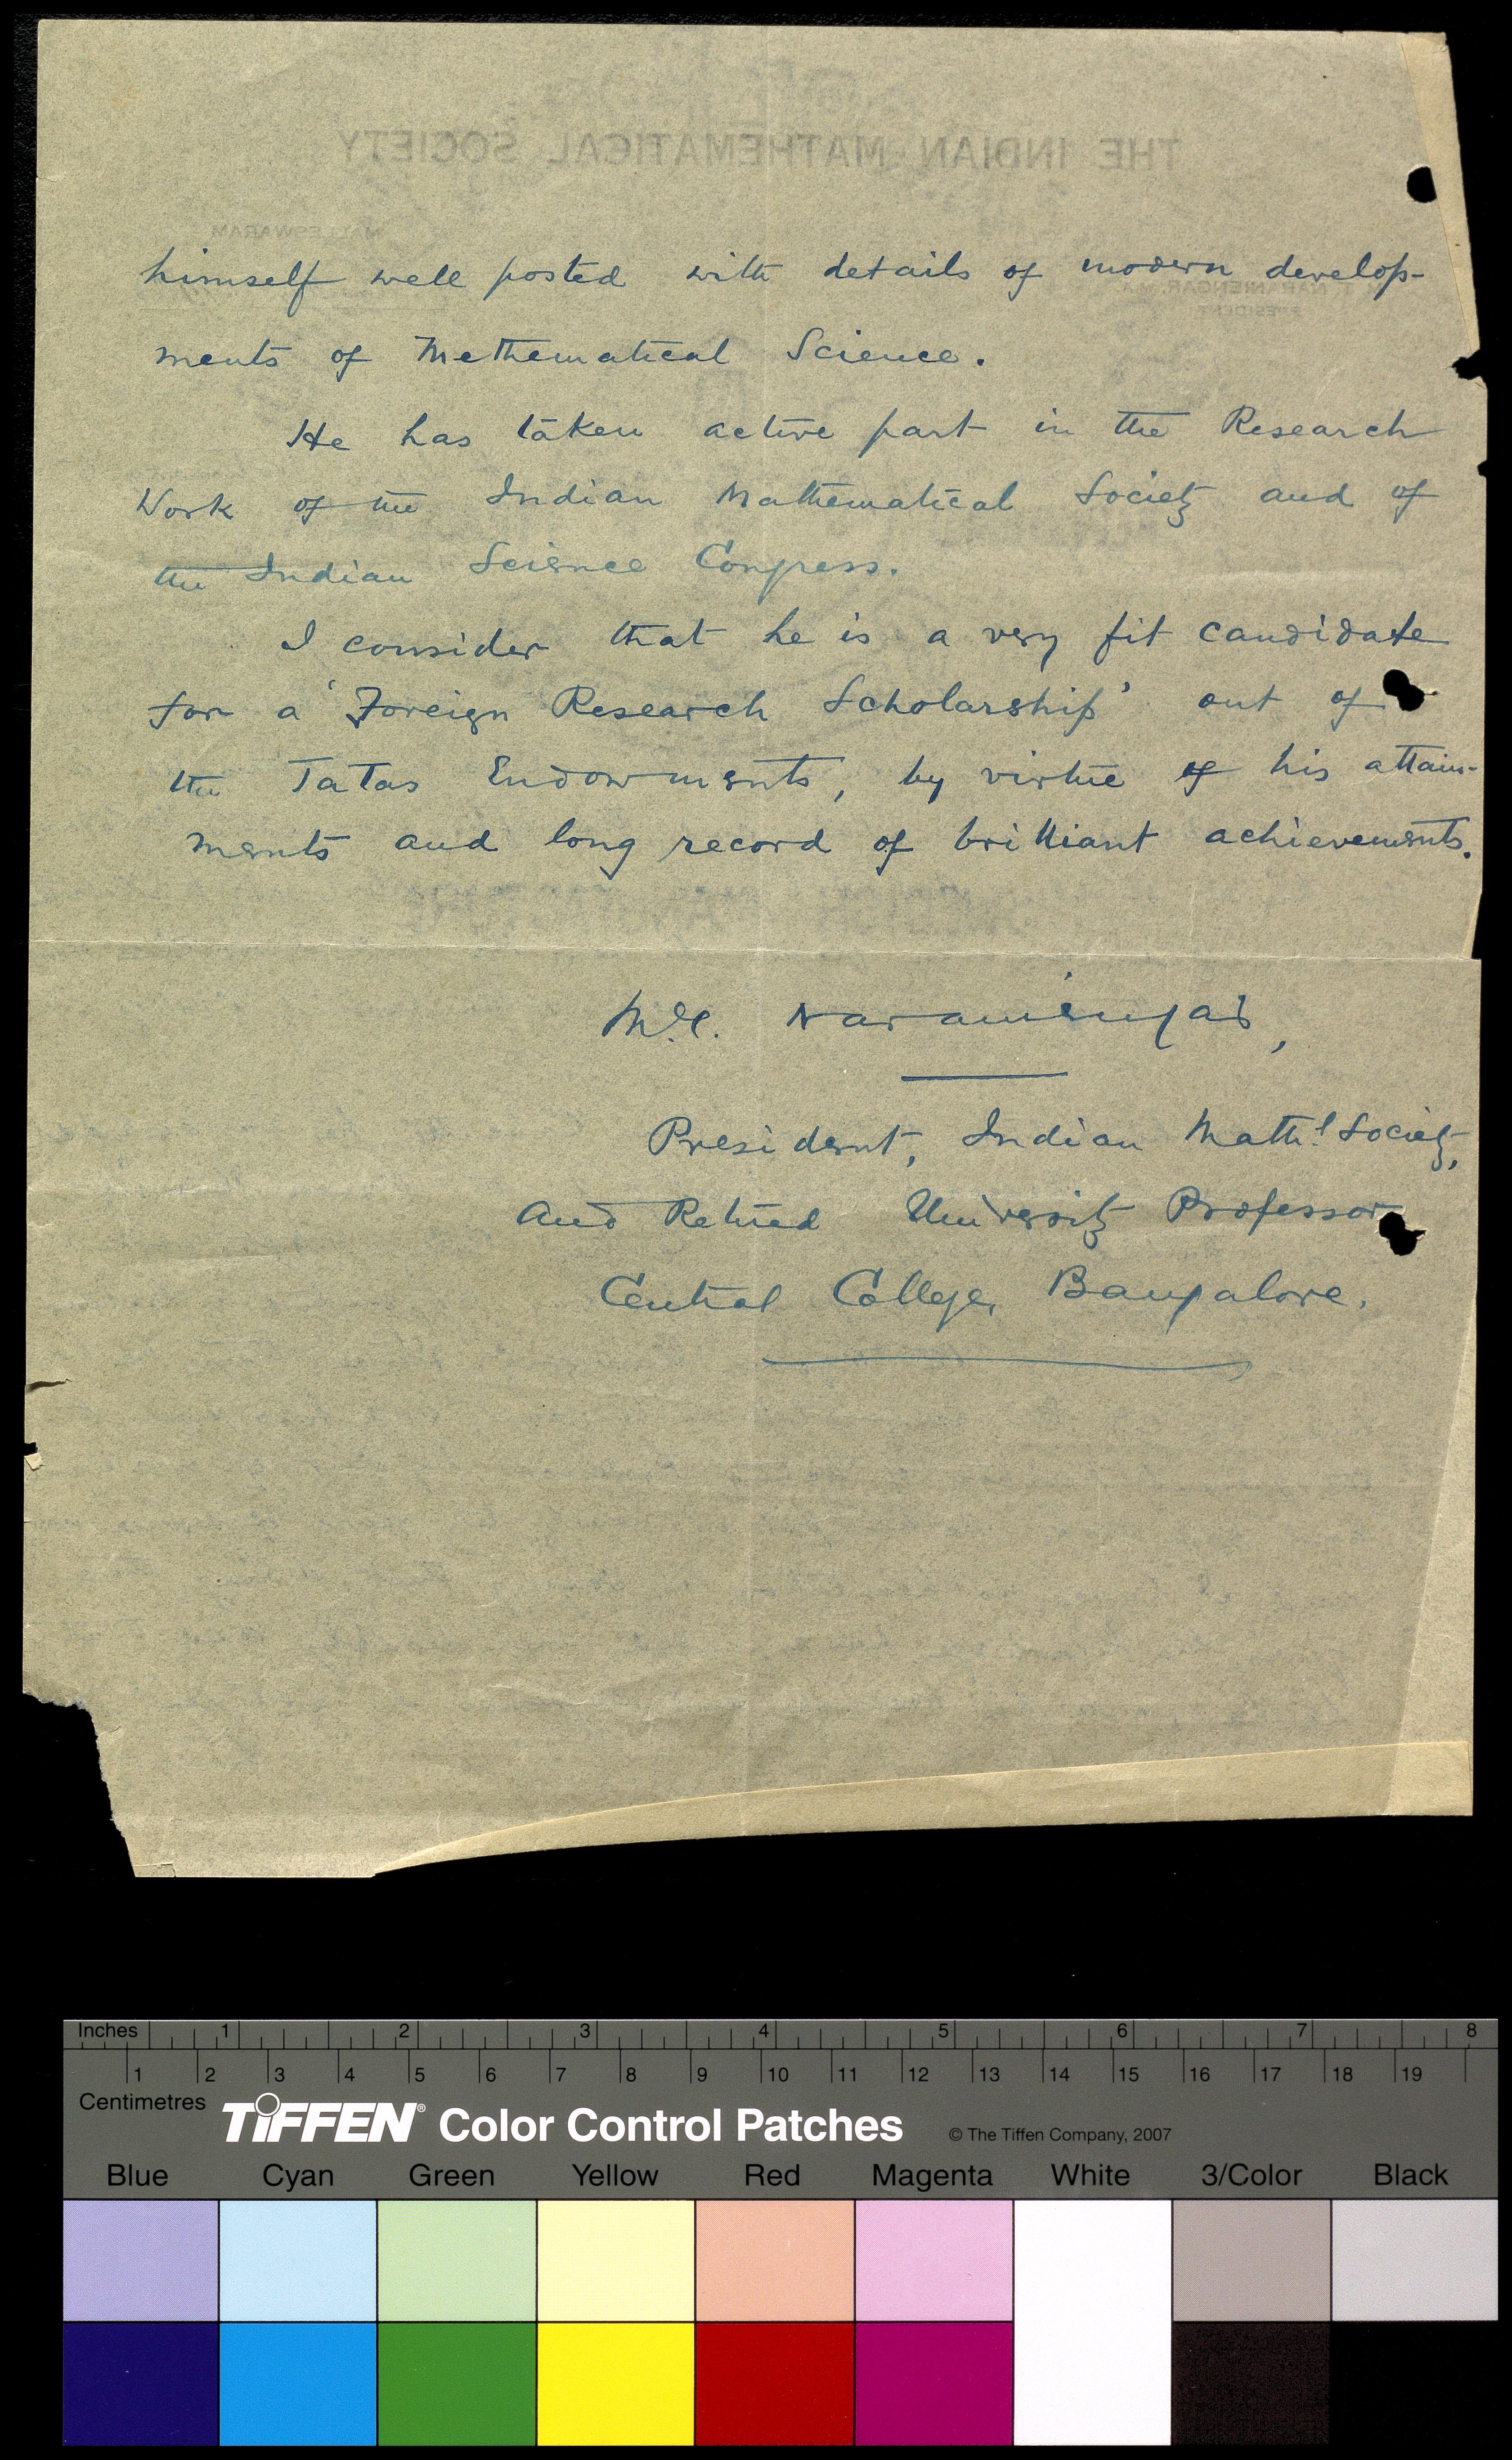 THE INDIAN MATHEMATICAL SOCIETY
MALLESWARAM
NARANIENGAR, M.A.
PRESIDENT
himself well posted with details of modern develop-
ments of Methematical Science.
He has taken active part in the Research
Work of the Indian Mathematical Society and of
the Indian Science Congress.
I consider that he is a very fit candidate
for a 'Foreign Research Scholarship' out of
the Tatas Endowments, by virtue of his attain-
ments and long record of brilliant achievements.
M.T. Naraniengar,
President, Indian Mathl. Society,
And Retired University Professor
Central College, Bangalore.
Inches 1 2 3 4 5 6 7 8
1 2 3 4 5 6 7 8 9 10 11 12 13 14 15 16 17 18 19
Centimetres
TIFFEN® Color Control Patches © The Tiffen Company, 2007
Blue Cyan Green Yellow Red Magenta White 3/Color Black